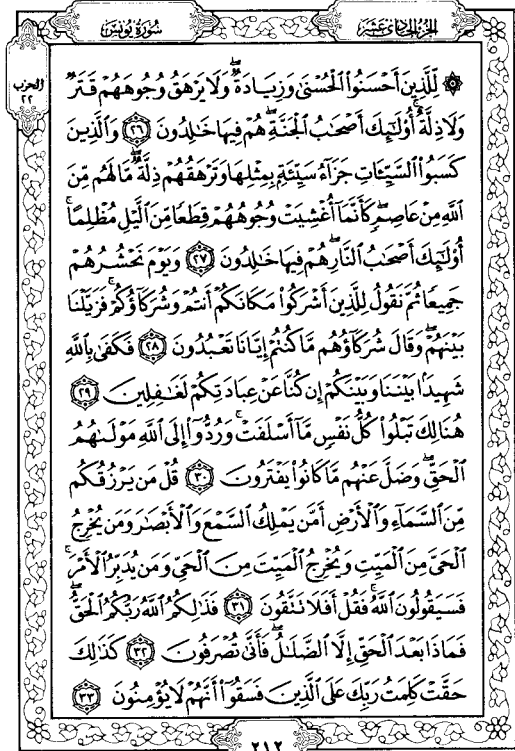 الجزء الحادي عشر
سورة يونس
الحزب
٢٢
۞ لِّلَّذِينَ أَحْسَنُوا۟ ٱلْحُسْنَىٰ وَزِيَادَةٌۖ وَلَا يَرْهَقُ وُجُوهَهُمْ قَتَرٌ
وَلَا ذِلَّةٌۚ أُو۟لَـٰٓئِكَ أَصْحَـٰبُ ٱلْجَنَّةِۖ هُمْ فِيهَا خَـٰلِدُونَ ﴿٢٦﴾ وَٱلَّذِينَ
كَسَبُوا۟ ٱلسَّيِّـَٔاتِ جَزَآءُ سَيِّئَةٍۭ بِمِثْلِهَا وَتَرْهَقُهُمْ ذِلَّةٌۖ مَّا لَهُم مِّنَ
ٱللَّهِ مِنْ عَاصِمٍۖ كَأَنَّمَآ أُغْشِيَتْ وُجُوهُهُمْ قِطَعًا مِّنَ ٱلَّيْلِ مُظْلِمًاۚ
أُو۟لَـٰٓئِكَ أَصْحَـٰبُ ٱلنَّارِۖ هُمْ فِيهَا خَـٰلِدُونَ ﴿٢٧﴾ وَيَوْمَ نَحْشُرُهُمْ
جَمِيعًا ثُمَّ نَقُولُ لِلَّذِينَ أَشْرَكُوا۟ مَكَانَكُمْ أَنتُمْ وَشُرَكَآؤُكُمْۚ فَزَيَّلْنَا
بَيْنَهُمْۖ وَقَالَ شُرَكَآؤُهُم مَّا كُنتُمْ إِيَّانَا تَعْبُدُونَ ﴿٢٨﴾ فَكَفَىٰ بِٱللَّهِ
شَهِيدًۢا بَيْنَنَا وَبَيْنَكُمْ إِن كُنَّا عَنْ عِبَادَتِكُمْ لَغَـٰفِلِينَ ﴿٢٩﴾
هُنَالِكَ تَبْلُوا۟ كُلُّ نَفْسٍ مَّآ أَسْلَفَتْۚ وَرُدُّوٓا۟ إِلَى ٱللَّهِ مَوْلَىٰهُمُ
ٱلْحَقِّۖ وَضَلَّ عَنْهُم مَّا كَانُوا۟ يَفْتَرُونَ ﴿٣٠﴾ قُلْ مَن يَرْزُقُكُم
مِّنَ ٱلسَّمَآءِ وَٱلْأَرْضِ أَمَّن يَمْلِكُ ٱلسَّمْعَ وَٱلْأَبْصَـٰرَ وَمَن يُخْرِجُ
ٱلْحَىَّ مِنَ ٱلْمَيِّتِ وَيُخْرِجُ ٱلْمَيِّتَ مِنَ ٱلْحَىِّ وَمَن يُدَبِّرُ ٱلْأَمْرَۚ
فَسَيَقُولُونَ ٱللَّهُۚ فَقُلْ أَفَلَا تَتَّقُونَ ﴿٣١﴾ فَذَٰلِكُمُ ٱللَّهُ رَبُّكُمُ ٱلْحَقُّۖ
فَمَاذَا بَعْدَ ٱلْحَقِّ إِلَّا ٱلضَّلَـٰلُۖ فَأَنَّىٰ تُصْرَفُونَ ﴿٣٢﴾ كَذَٰلِكَ
حَقَّتْ كَلِمَتُ رَبِّكَ عَلَى ٱلَّذِينَ فَسَقُوٓا۟ أَنَّهُمْ لَا يُؤْمِنُونَ ﴿٣٣﴾
٢١٢